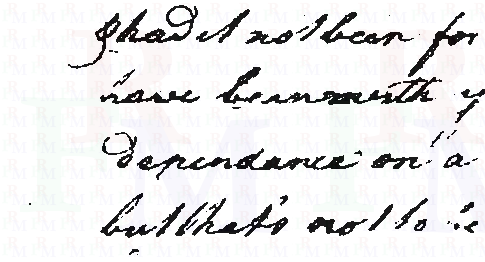 I had it not been for
have been worth y
dependance on a
but that's not to be